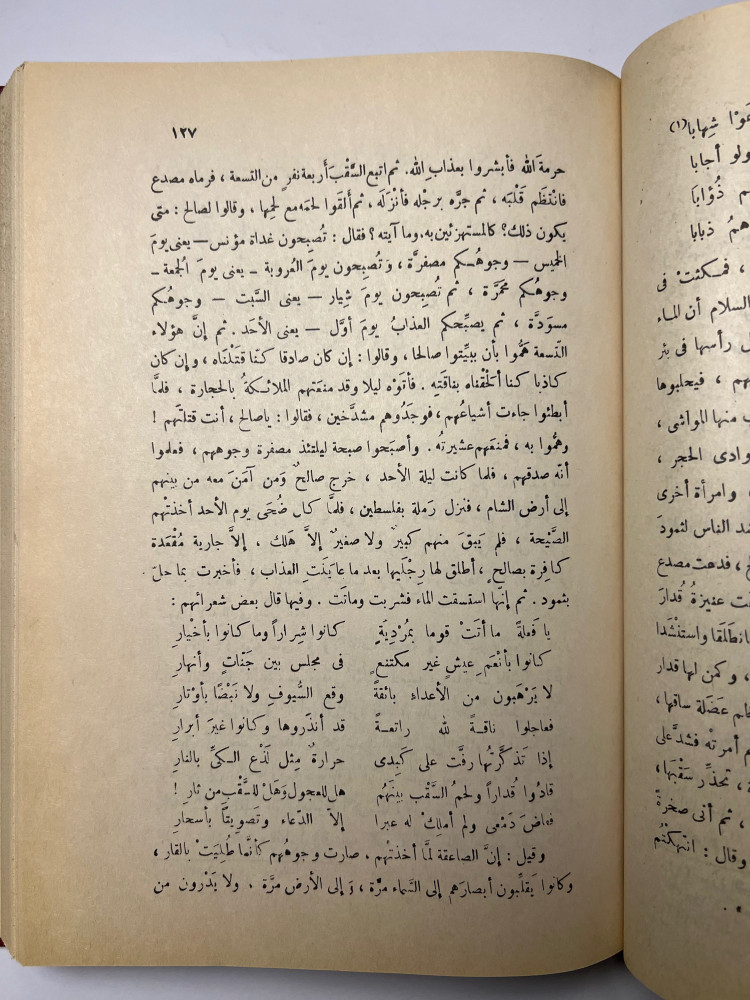 ١٢٧
حرمةَ الله فأبشروا بعذابِ الله. ثم اتبع السَّقْبَ أربعة نفرٍ من التسعة ، فرماه مصدع
فانْتَظَم قَلْبَه ، ثم جرَّه برجْله فأنْزَلَه ، ثم ألقَوا لحمَه مع لحمِها ، وقالوا لصالح : متى
يكون ذلك؟ كالمستهزئين به. وما آيته ؟ فقال : تُصبِحون غداة مؤنس — يعنى يومَ
الخميس — وجوهُكم مصفرَّة ، وَتُصبحون يومَ العروبة — يعنى يومَ الجُمعة —
وجوهُكم مُحمَرَّة ، ثم تُصبحون يومَ شِيار — يعنى السَّبت — وجوهُكم
مسوَدَّة ، ثم يصبِّحكم العذابُ يومَ أوَّل — يعنى الأحَد . ثم إنَّ هؤلاء
التّسعة هَمُّوا بأن يبيِّتوا صالحا ، وقالوا : إن كان صادقا كنّا قتَلْنَاه ، وإن كان
كاذبا كنا ألحقْناه بناقَتِهِ . فأتَوْه ليلا وقد منعَتْهم الملائكةُ بالحجارة ، فلمَّا
أبطئوا جاءت أشياعُهم ، فوجَدُوهم مشدَّخين ، فقالوا : ياصالح ، أنت قتلتَهم !
وهمُّوا به ، فمنعَهم عشيرتُه . وأصبَحوا صبحة ليلتئذ مصفرة وجوههم ، فعلموا
أنّه صدقهم ، فلما كانت ليلة الأحد ، خرج صالحٌ وَمن آمَنَ معه من بينهم
إلى أرض الشام ، فنزل رَملة بفلسطين ، فلمَّا كان ضُحَى يوم الأحد أخذتْهم
الصَّيْحة ، فلم يَبقَ منهم كبيرٌ ولا صغيرٌ إلاَّ هَلك . إلاَّ جارية مُقْعَدة
كافِرة بصالحٍ ، أطلق لها رِجْليها بعد ما عايَنَتِ العذاب ، فأخبرت بما حلّ
بثمود . ثم إنّها استسقت الماء فشربت وماتَت . وفيها قال بعض شعرائهم :
يا فَعلةً ما أتَتْ قوما بمُرْدِيَةٍ كانوا شِراراً وما كانوا بأخْيارِ
كانوا بأنْعَمِ عيشٍ غير مكتنعٍ فى مجلسٍ بين جَنّاتٍ وأنهارِ
لا يَرْهَبون من الأعداءِ بائقةً وقع السُّيوفِ ولا نَبْضًا بأوْتارِ
فعاجلوا ناقةً لله راتعةً قد أنذَروها وكانوا غيرَ أبرارِ
إذا تَذكَّرتُها رفَّت على كَبِدى حرارةٌ مِثل لَذْعِ الكىِّ بالنارِ
قادُوا قُداراً ولحمُ السَّقْب بينَهُم هل للعجول وَهَلْ للسَّقْبِ من ثارِ !
فغاضَ دَمْعى ولم أملِكْ له عبرا إلاَّ الدّعاء وتَصويتًا بأسحارِ
وقيل : إنَّ الصاعقة لمَّا أخذتْهم ، صارت وجوهُهم كأنَّما طُلِيَتْ بالقار ،
وكانوا يَقلِّبون أبصارَهم إلى السَّماء مرَّة ، وَإلى الأرض مرَّة . ولا يَدْرون من
شِهابا(١)
ولو أجابا
ذُؤابَا
ذبابا
، فمكثتْ فى
السلام أن الماء
رأسها فى بئر
، فيحلبوها
منها المواشى ،
وادى الحجر ،
، وامرأة أخرى
الناس لثمودَ
، فدعت مصدع
عنيزةُ قُدارَ
فانطَلَقا واستنْشَدا
، وكمن لها قدار
عَضَلة ساقها ،
أمرتْه فشدَّ على
، تحذِّر سَقْبَها ،
، ثم أتى صخرةً
وقال : انتَهكْتُم